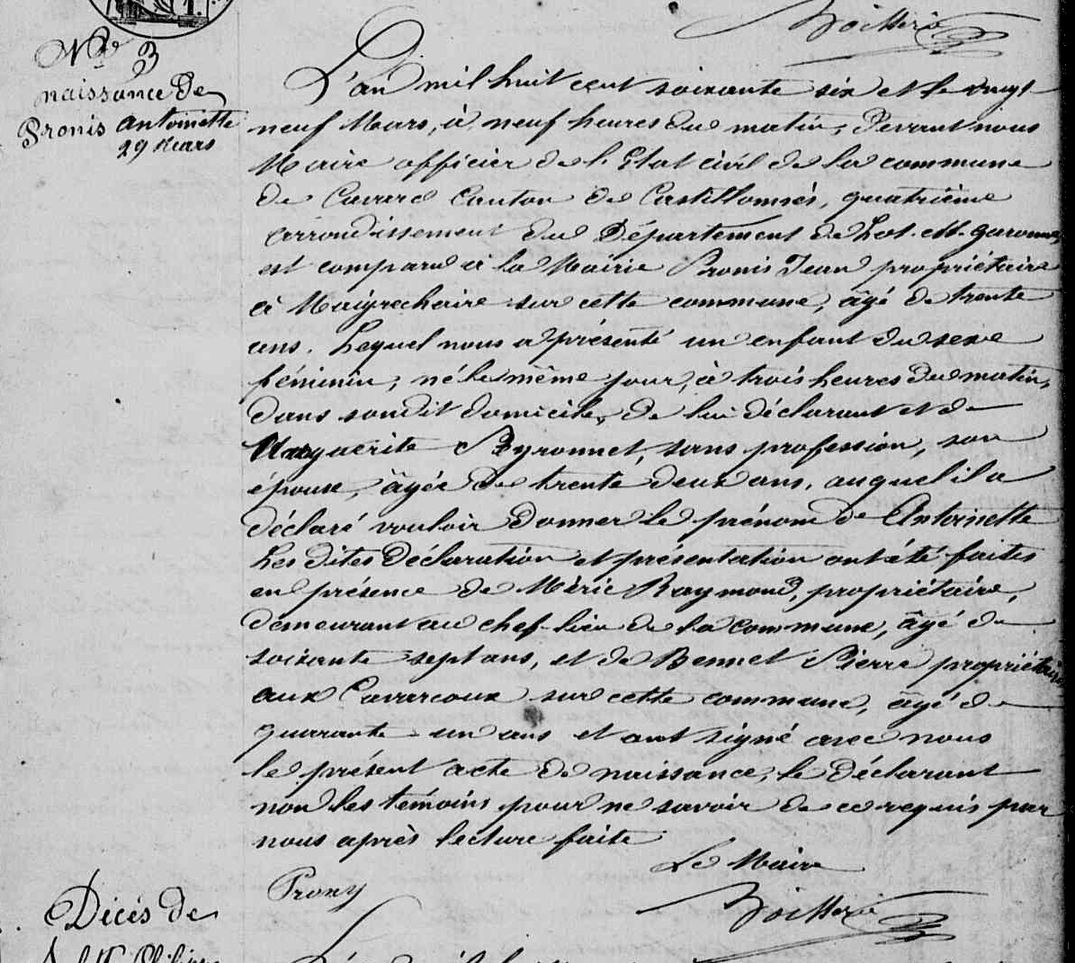 N° 3
naissance de
Pronis Antoinette
29 Mars
L'an mil huit cent soixante six et le vingt
neuf Mars, à neuf heures du matin, Devant nous
Maire officier de l'Etat civil de la commune
de Cavarc Canton de Castillonnès, quatrième
arrondissement du Département de Lot-et-garonne,
est comparu à la Mairie Pronis Jean propriétaire
à Maigrechaire sur cette commune, âgé de trente
ans. Lequel nous a présenté un enfant du sexe
féminin, né le même jour, à trois heures du matin,
dans son dit domicile, de lui déclarant et de
Marguerite Peyronnet, sans profession, son
épouse, âgée de trente deux ans, auquel il a
déclaré vouloir donner le prénom de Antoinette
Les dites Déclaration et présentation ont été faites
en présence de Méric Raymond, propriétaire,
demeurant au chef-lieu de la commune, âgé de
soixante sept ans, et de Bennet Pierre propriétaire
aux Cavarcoux sur cette commune, âgé de
quarante un ans et ont signé avec nous
le présent acte de naissance, le déclarant
non les témoins pour ne savoir de ce requis par
nous après lecture faite
Le Maire
Prony
Décès de